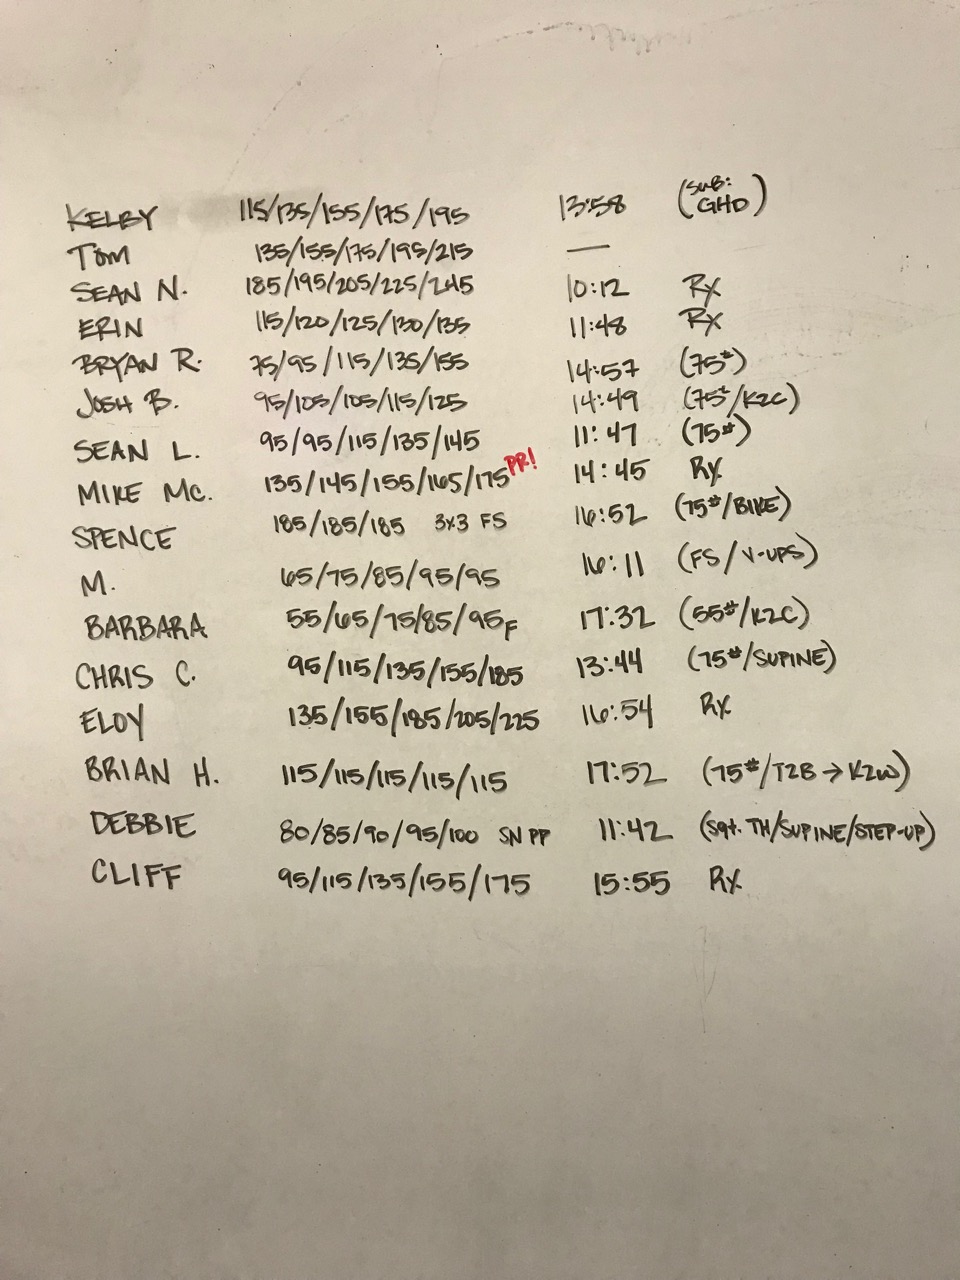 KELBY 115/135/155/175/195 13:58 (SUB: GHD)
Tom 135/155/175/195/215 —
SEAN N. 185/195/205/225/245 10:12 RX
ERIN 115/120/125/130/135 11:48 RX
BRYAN R. 75/95/115/135/155 14:57 (75#)
JOSH B. 95/105/105/115/125 14:49 (75#/K2C)
SEAN L. 95/95/115/135/145 11:47 (75#)
MIKE MC. 135/145/155/165/175 PR! 14:45 RX
SPENCE 185/185/185 3x3 FS 16:52 (75#/BIKE)
M. 65/75/85/95/95 16:11 (FS/V-UPS)
BARBARA 55/65/75/85/95F 17:32 (55#/K2C)
CHRIS C. 95/115/135/155/185 13:44 (75#/SUPINE)
ELOY 135/155/185/205/225 16:54 RX
BRIAN H. 115/115/115/115/115 17:52 (75#/T2B → K2W)
DEBBIE 80/85/90/95/100 SN PP 11:42 (Sqt. TH/SUPINE/STEP-UP)
CLIFF 95/115/135/155/175 15:55 RX